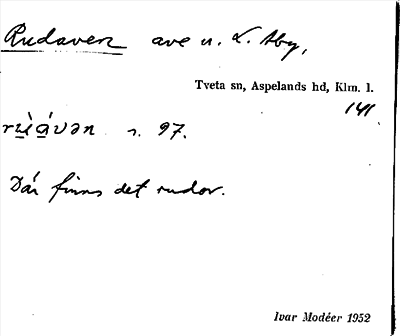 Rudaven ave u. L. Aby,
Tveta sn, Aspelands hd, Klm. l.
141
rụ̀ạ́vən s. 97.
Där finns det rudor.
Ivar Modéer 1952